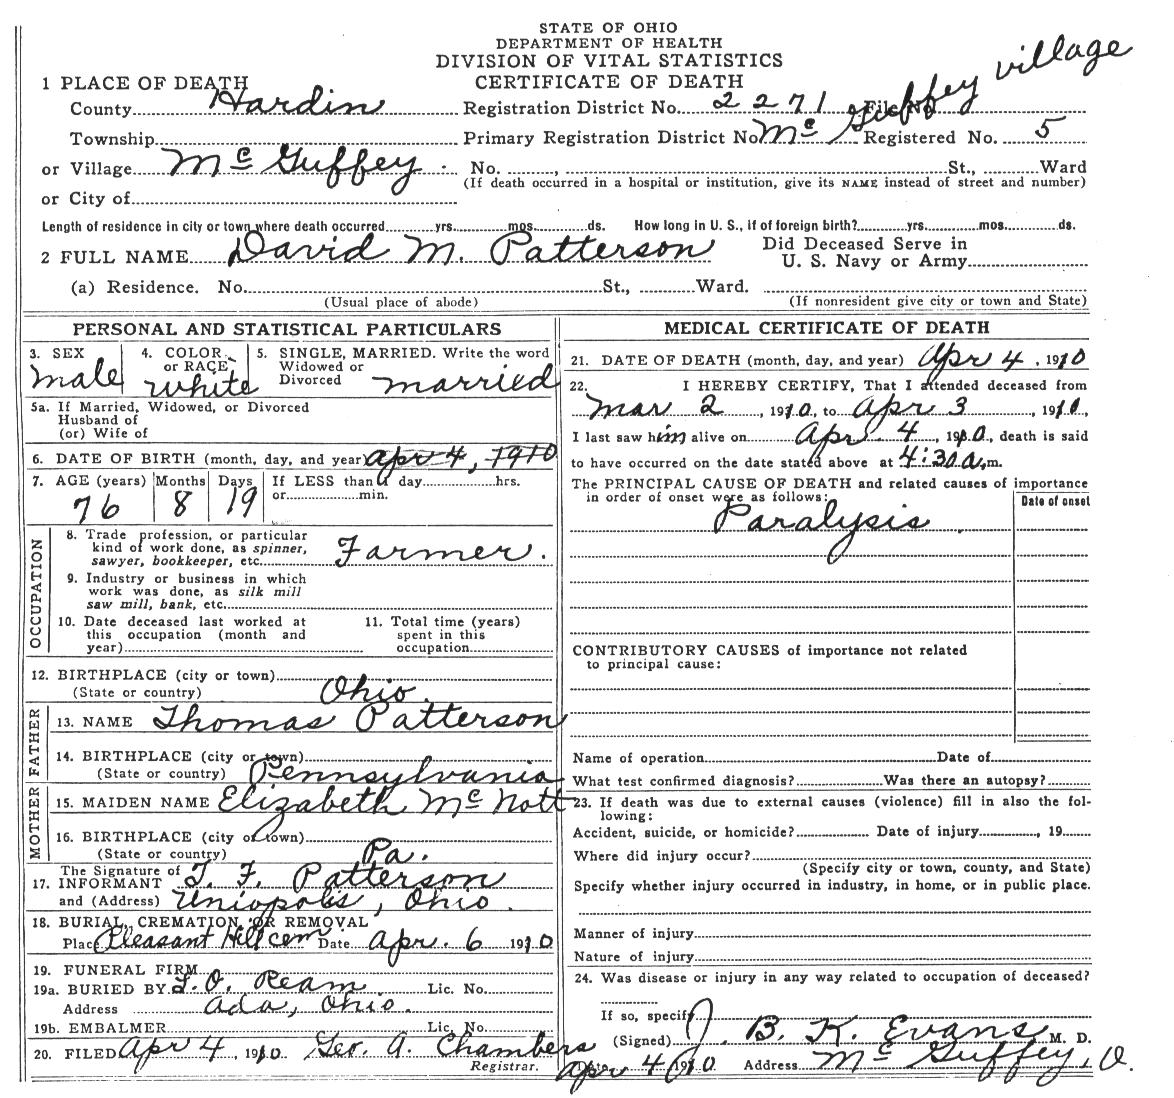 STATE OF OHIO
DEPARTMENT OF HEALTH
DIVISION OF VITAL STATISTICS
CERTIFICATE OF DEATH
1 PLACE OF DEATH
County Hardin Registration District No. 2271 File No.
Township Primary Registration District No. Mc Guffey village Registered No. 5
or Village Mc Guffey No. , St., Ward
(If death occurred in a hospital or institution, give its NAME instead of street and number)
or City of
Length of residence in city or town where death occurred yrs. mos. ds. How long in U. S., if of foreign birth? yrs. mos. ds.
2 FULL NAME David M. Patterson Did Deceased Serve in
U. S. Navy or Army
(a) Residence. No. St., Ward.
(Usual place of abode) (If nonresident give city or town and State)
PERSONAL AND STATISTICAL PARTICULARS
3. SEX male
4. COLOR or RACE white
5. SINGLE, MARRIED. Write the word
Widowed or
Divorced married
5a. If Married, Widowed, or Divorced
Husband of
(or) Wife of
6. DATE OF BIRTH (month, day, and year) Apr 4, 1910
7. AGE (years) Months Days If LESS than 1 day hrs.
76 8 19 or min.
OCCUPATION
8. Trade profession, or particular
kind of work done, as spinner,
sawyer, bookkeeper, etc. Farmer.
9. Industry or business in which
work was done, as silk mill
saw mill, bank, etc.
10. Date deceased last worked at
this occupation (month and
year)
11. Total time (years)
spent in this
occupation
12. BIRTHPLACE (city or town)
(State or country) Ohio.
FATHER
13. NAME Thomas Patterson
14. BIRTHPLACE (city or town)
(State or country) Pennsylvania
MOTHER
15. MAIDEN NAME Elizabeth Mc Nott
16. BIRTHPLACE (city or town)
(State or country) Pa.
The Signature of
17. INFORMANT T. F. Patterson
and (Address) Uniopolis, Ohio.
18. BURIAL, CREMATION, OR REMOVAL
Place Pleasant Hill cem Date Apr. 6 1910
19. FUNERAL FIRM
19a. BURIED BY T. O. Ream Lic. No.
Address Ada, Ohio.
19b. EMBALMER Lic. No.
20. FILED Apr 4, 1910. Geo. A. Chambers
Registrar.
MEDICAL CERTIFICATE OF DEATH
21. DATE OF DEATH (month, day, and year) Apr 4, 1910
22. I HEREBY CERTIFY, That I attended deceased from
Mar 2, 1910, to Apr 3, 1910,
I last saw him alive on Apr. 4, 1910., death is said
to have occurred on the date stated above at 4:30 a.m.
The PRINCIPAL CAUSE OF DEATH and related causes of importance
in order of onset were as follows:
Date of onset
Paralysis
CONTRIBUTORY CAUSES of importance not related
to principal cause:
Name of operation Date of
What test confirmed diagnosis? Was there an autopsy?
23. If death was due to external causes (violence) fill in also the fol-
lowing:
Accident, suicide, or homicide? Date of injury , 19
Where did injury occur?
(Specify city or town, county, and State)
Specify whether injury occurred in industry, in home, or in public place.
Manner of injury
Nature of injury
24. Was disease or injury in any way related to occupation of deceased?
If so, specify
(Signed) J. B. K. Evans M. D.
Date Apr 4 1910 Address Mc Guffey, O.